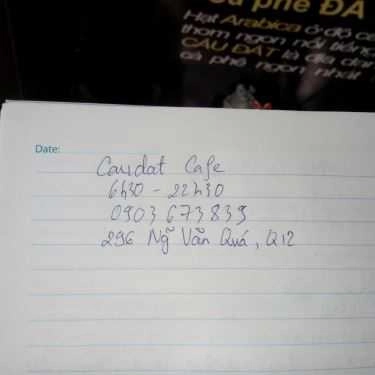 cà phê ĐÁ
Hạt Arabica ở độ ca
thơm ngon nổi tiếng
CẦU ĐẤT là địa dan
cà phê ngon nhất
Date:
Caudat Cafe
6h30 - 22h30
0903 673 839
296 Ng̃ Văn Quá, Q12